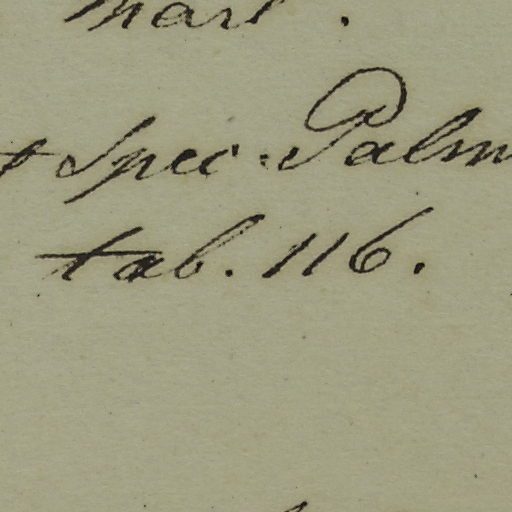 Mart.
et Spec. Palm
tab. 116.